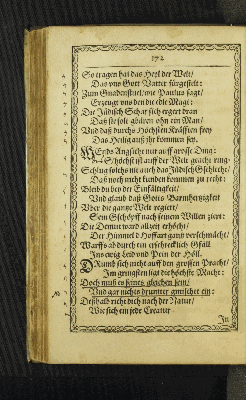 172
So tragen hai das Heyl der Welt/
Das uns Gott Vatter fürgestelt:
Zum Gnadenstuel/wie Paulus sagt/
Erzeugt uns den die edle Magt:
Die Jüdisch Schar sich ergert dran
Daß sie solt gbären ohn ein Man/
Und daß durchs Höchsten Kräfften frey
Das Heilig auß ihr kommen sey.
WEnds Angsicht nur auff grosse Ding:
Höchst ist auff der Welt geacht ring
Schlug solchs nit auch das Jüdisch Gschlecht/
Daß noch nicht kunden kommen zu recht:
Blend du bey der Einfältigkeit/
Und glaub daß Gotts Barmhertzigkeit
Uber die gantze Welt regiert/
Sein Gschöpff nach seinem Willen ziert:
Die Demut ward allzeit erhöcht/
Der Himmel d'Hoffart gantz verschmächt/
Warffs ab durch ein erschrecklich Gfäll
Ins ewig Leid und Pein der Höll.
DRumb sich nicht auff den grossen Pracht/
Im geringsten ligt die höchste Macht:
Doch muß es seines gleichen sein/
Und gar nichts drunder gmischet ein:
Deßhalb richt dich nach der Natur/
Wie sich ein jede Creatur
In